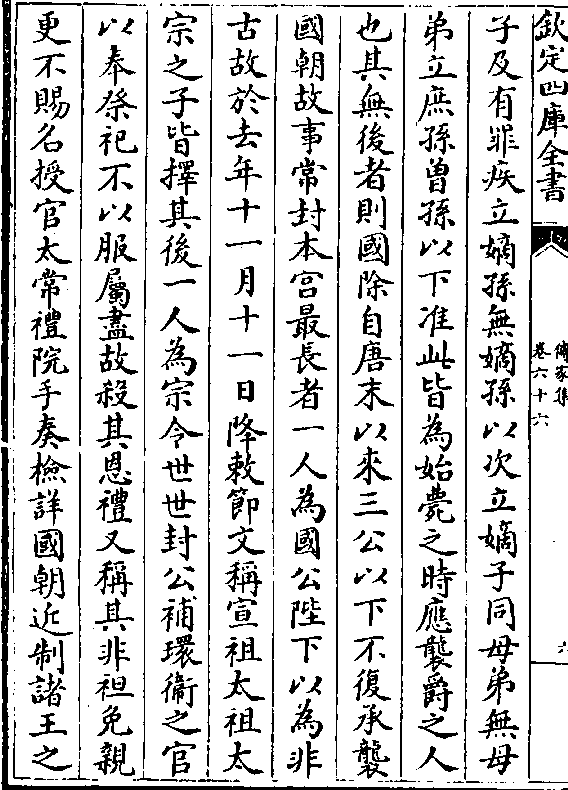 欽定四庫全書
傳家集
卷六十六
六
子及有罪疾立嫡孫無嫡孫以次立嫡子同母弟無母
弟立庶孫曽孫以下准此皆為始薨之時應襲爵之人
也其無後者則國除自唐末以來三公以下不復承襲
國朝故事常封本宫最長者一人為國公陛下以為非
古故於去年十一月十一日降敕節文稱宣祖太祖太
宗之子皆擇其後一人為宗令世世封公補環衞之官
以奉祭祀不以服屬盡故殺其恩禮又稱其非袒免親
更不賜名授官太常禮院手奏檢詳國朝近制諸王之